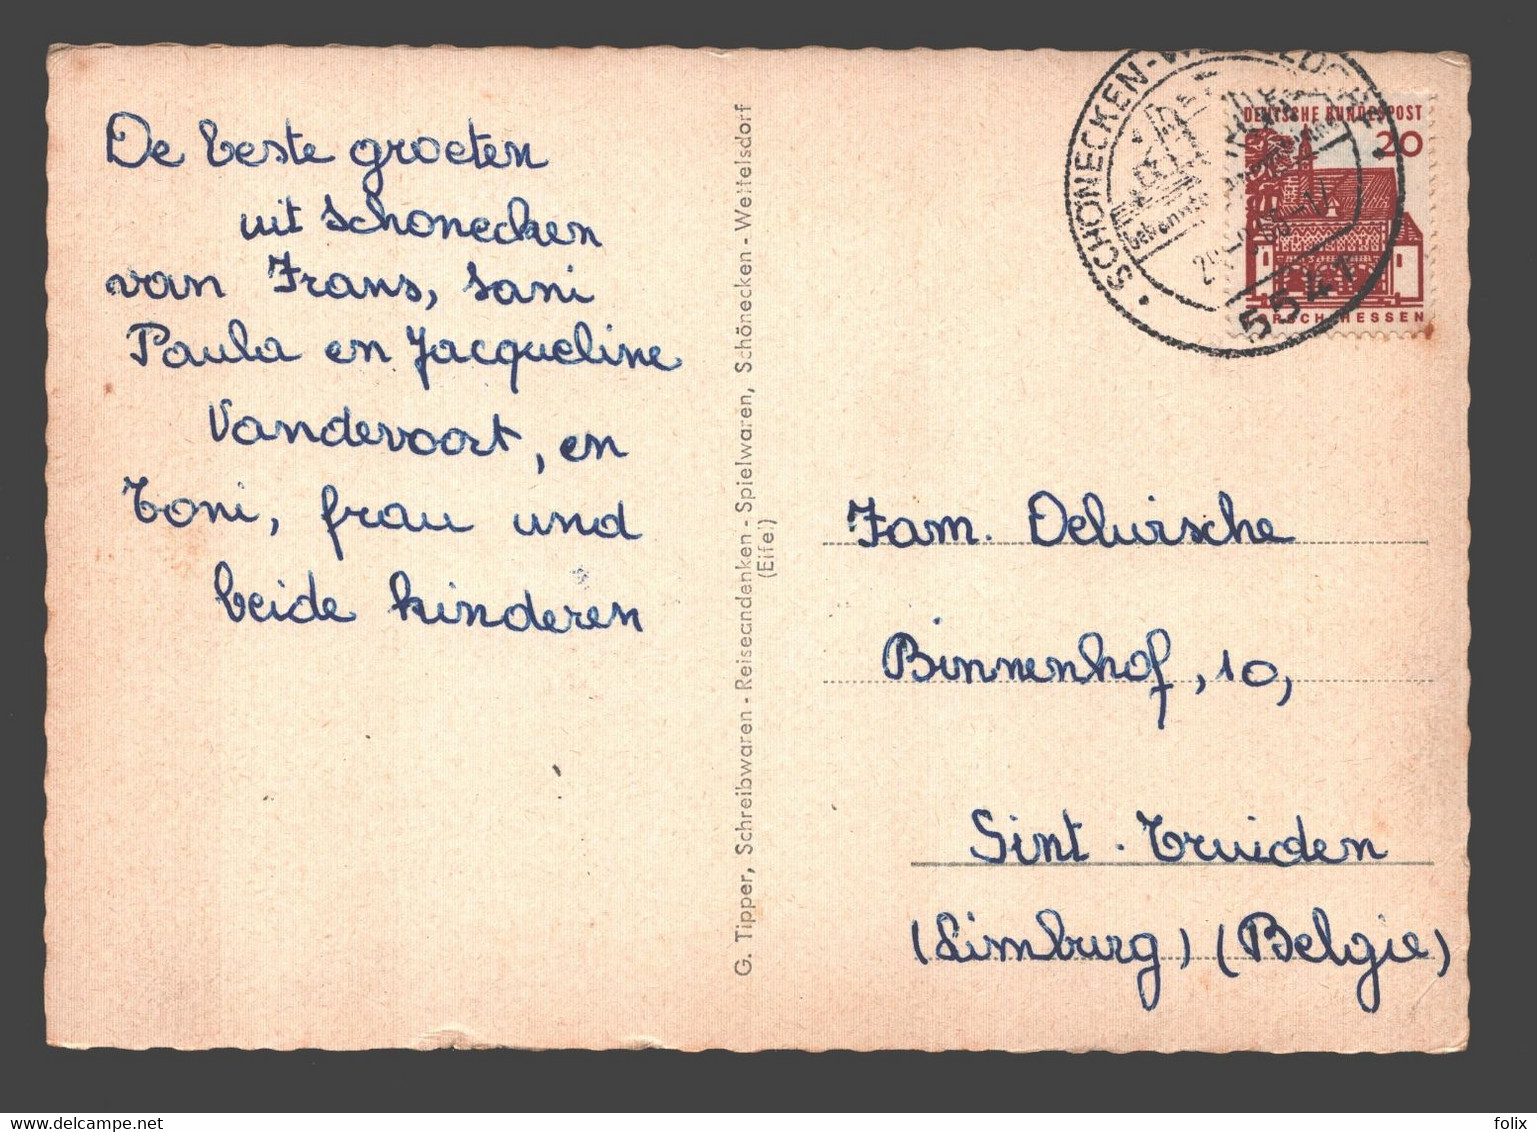 De beste groeten
uit Schonecken
van Frans, Sani
Paula en Jacqueline
Vandevoort, en
Toni, frau und
beide kinderen
G. Tipper, Schreibwaren - Reiseandenken - Spielwaren, Schönecken - Wettelsdorf
(Eifel)
DEUTSCHE BUNDESPOST
20
5541
Fam.
Binnenhof, 10,
Sint-Truiden
(Limburg) (Belgie)
delcampe.net
folix